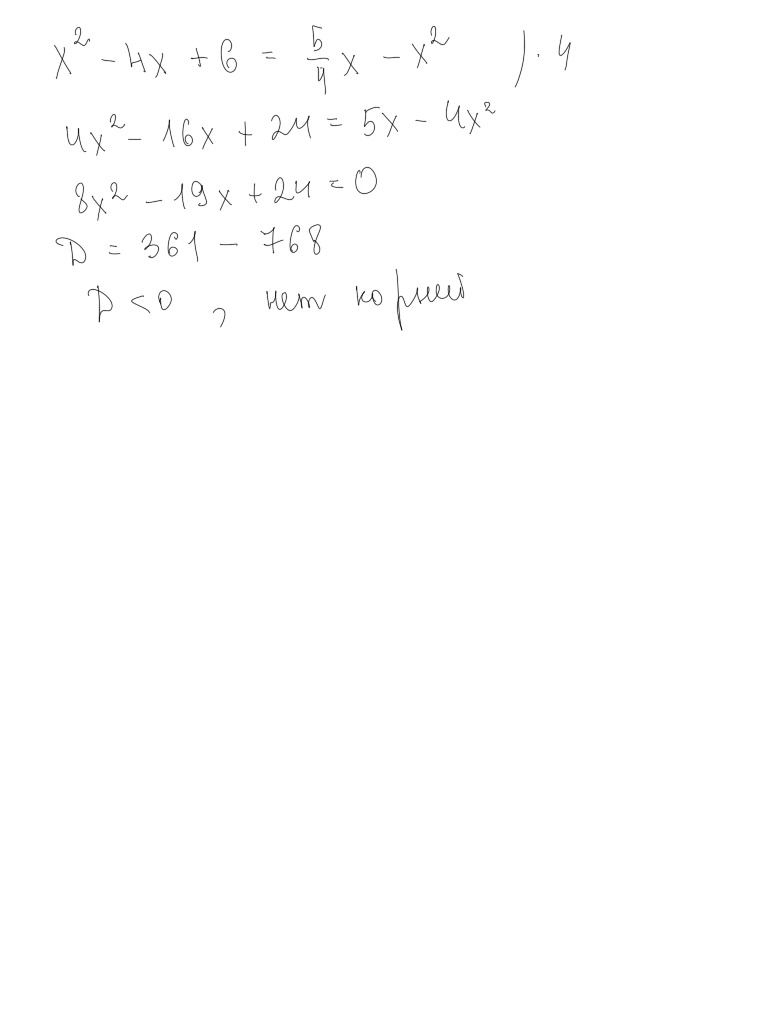 x² - 4x + 6 = 5/4 x - x² ) · 4
4x² - 16x + 24 = 5x - 4x²
8x² - 19x + 24 = 0
D = 361 - 768
D < 0 , нет корней